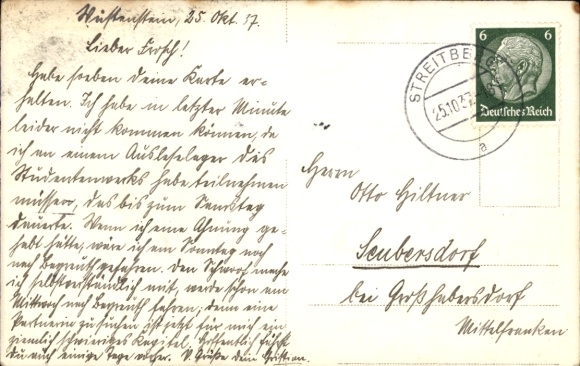 Wüstenstein, 25. Okt. 37.
Lieber Frosch!
Habe soeben deine Karte er-
halten. Ich habe in letzter Minute
leider nicht kommen können, da
ich an einem Ausleselager des
Studentenwerks habe teilnehmen
müssen, das bis zum Samstag
dauerte. Wenn ich eine Ahnung ge-
habt hätte, wäre ich am Sonntag noch
nach Bayreuth gefahren. Den Schwof mache
ich selbstverständlich mit, werde schon am
Mittwoch nach Bayreuth fahren; denn eine
Partnerin zu suchen ist jetzt für mich ein
ziemlich schwieriges Kapitel. Hoffentlich fährst
du auch einige Tage vorher. V. Grüße dein
6 6
Deutsches Reich
STREITBERG
25.10.37
a
Herrn
Otto Hiltner
Seubersdorf
bei Großhabersdorf
Mittelfranken